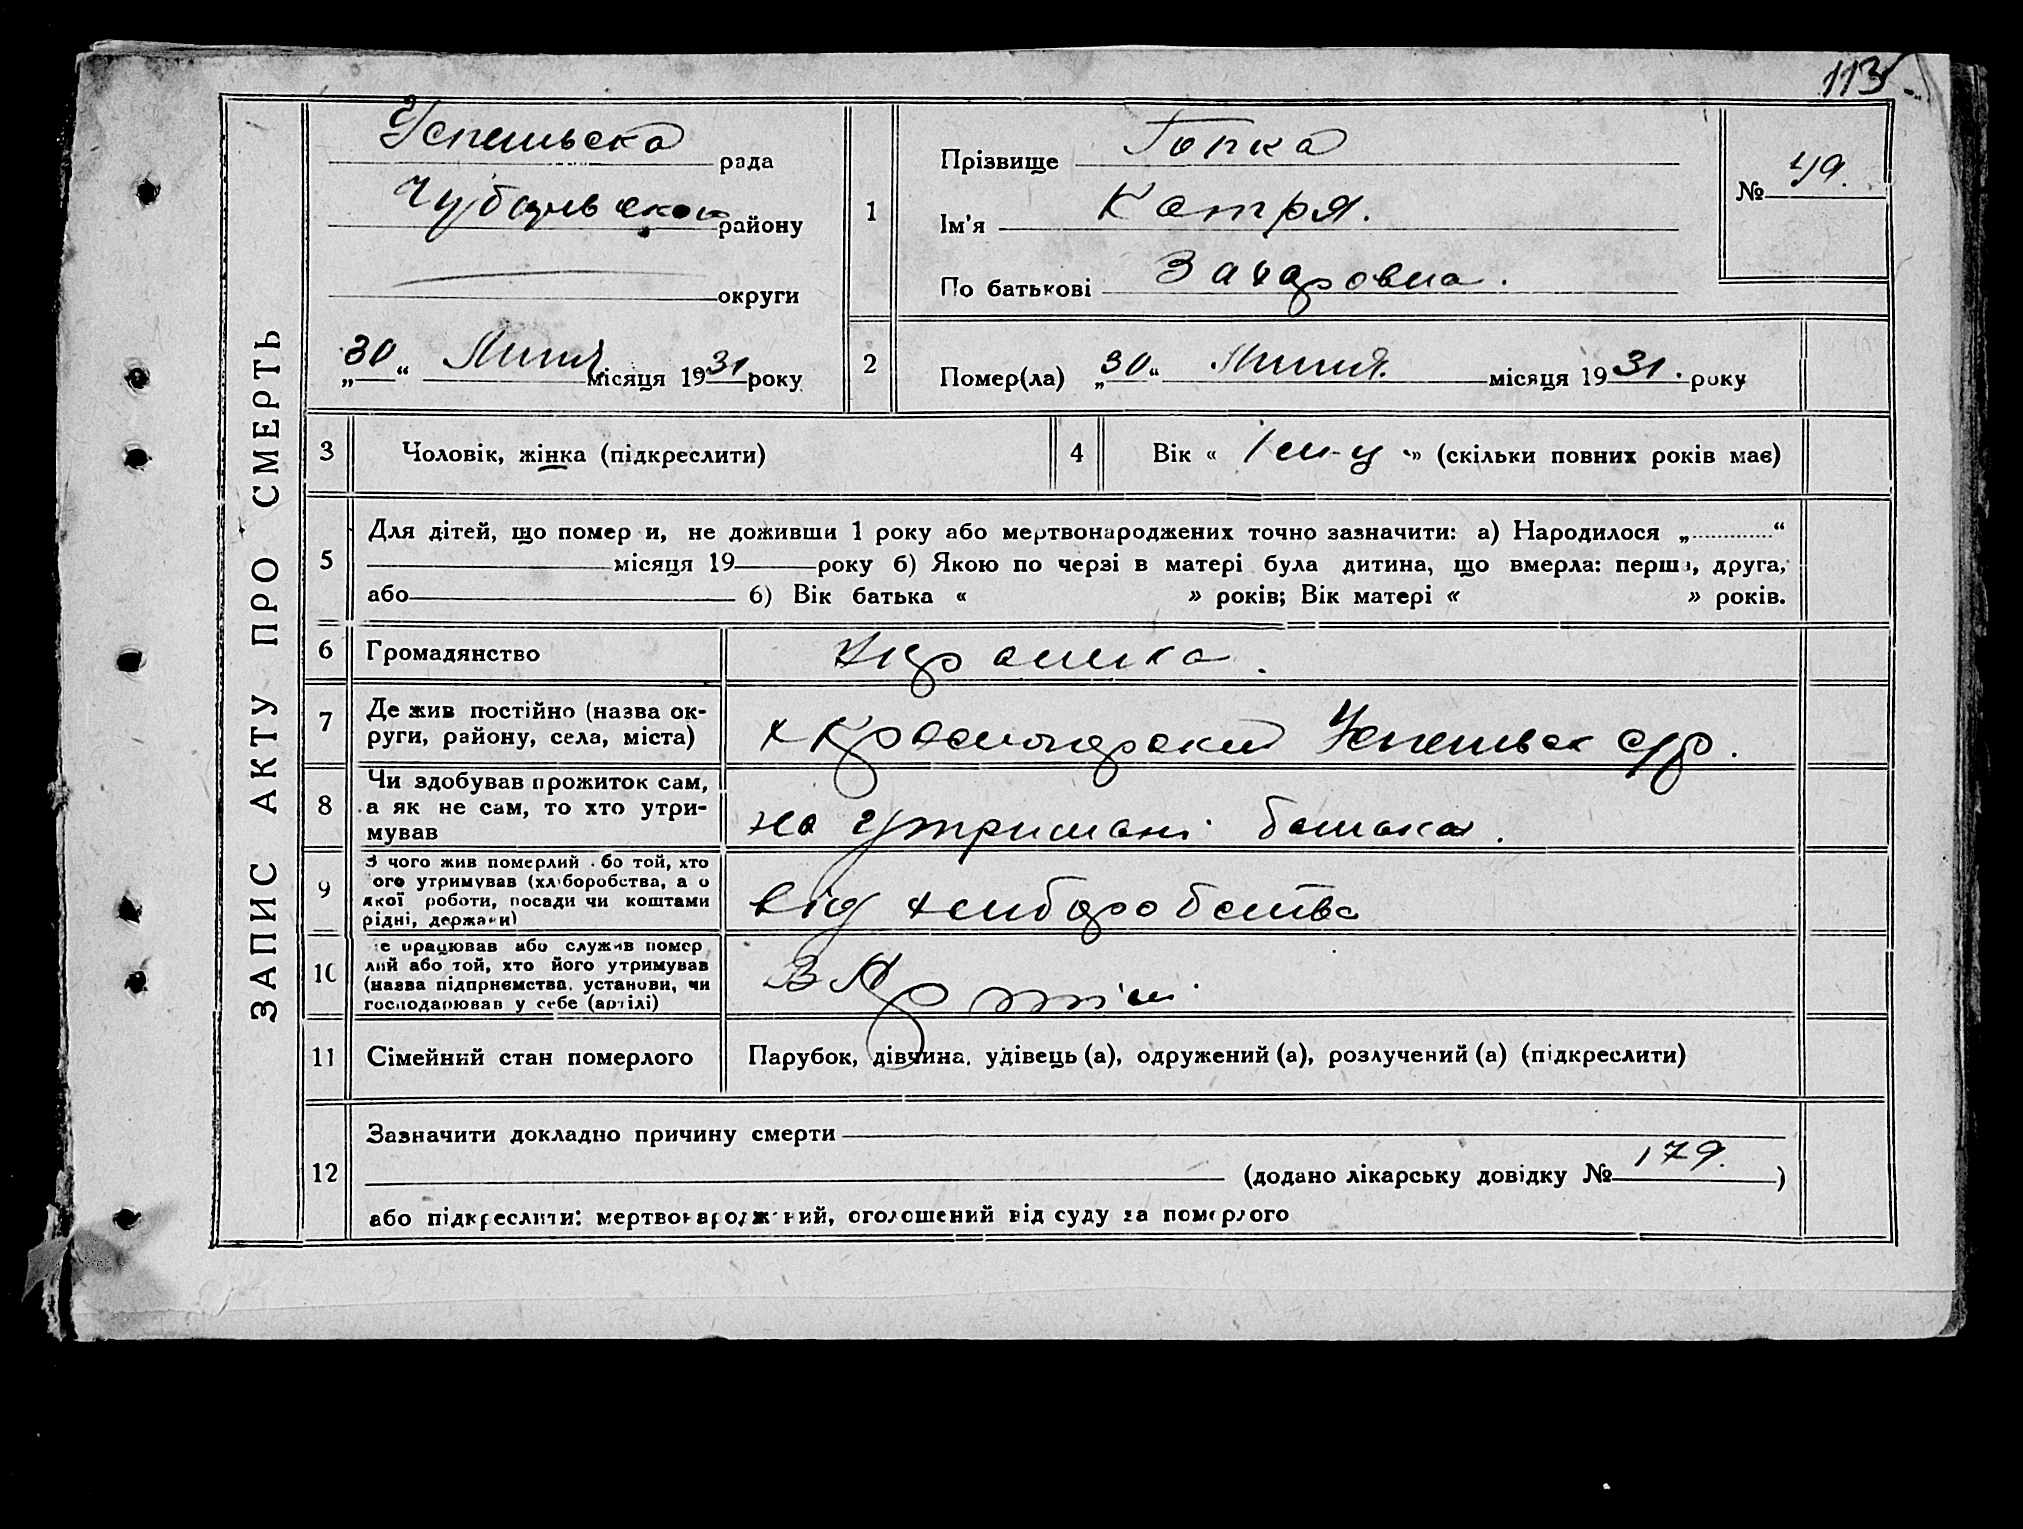 113
ЗАПИС АКТУ ПРО СМЕРТЬ
Успеньська рада
Чубарівського району
округи
„30“ Липня місяця 1931 року
1
Прізвище Гопка
Ім'я Катря.
По батькові Захаровна.
№ 49.
2
Помер(ла) „30“ Липня. місяця 1931. року
3 Чоловік, жінка (підкреслити)
4 Вік « 1 м-ц » (скільки повних років має)
5
Для дітей, що помер и, не доживши 1 року або мертвонароджених точно зазначити: а) Народилося „ “
місяця 19 року б) Якою по черзі в матері була дитина, що вмерла: перша, друга,
або 6) Вік батька « » років; Вік матері « » років.
6 Громадянство Українка.
7
Де жив постійно (назва ок-
руги, району, села, міста)
х Успеньск с/р.
8
Чи здобував прожиток сам,
а як не сам, то хто утри-
мував
на утримані батька.
9
З чого жив померлий або той, хто
ого утримував (хліборобства, а о
якої роботи, посади чи коштами
рідні, держави)
від хліборобства
10
е працював або служив помер
лий або той, хто його утримував
(назва підприємства, установи, чи
господарював у себе (артілі)
В Артілі
11 Сімейний стан померлого Парубок, дівчина, удівець (а), одружений (а), розлучений (а) (підкреслити)
12
Зазначити докладно причину смерти
(додано лікарську довідку № 179.)
або підкреслити: мертвонароджений, оголошений від суду за померлого